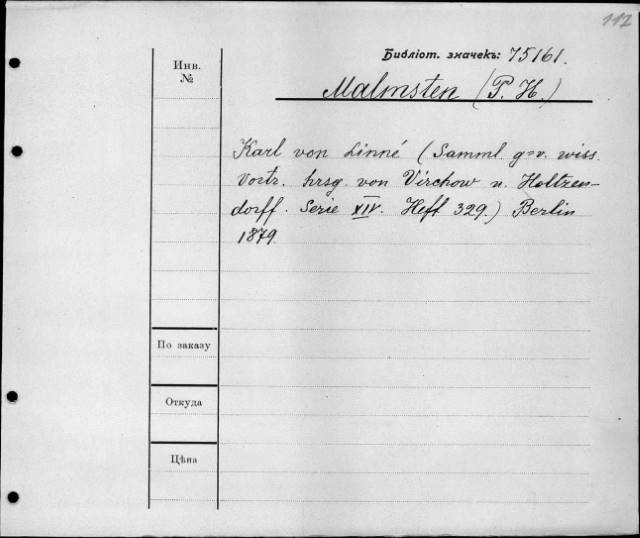 117
Библіот. значекъ: 75161.
Инв.
№
Malmsten (P. H.)
Karl von Linné (Samml. gev. wiss.
Vortr. hrsg. von Virchow u. Holtzen-
dorff. Serie XIV. Heft 329.) Berlin
1879.
По заказу
Откуда
Цѣна